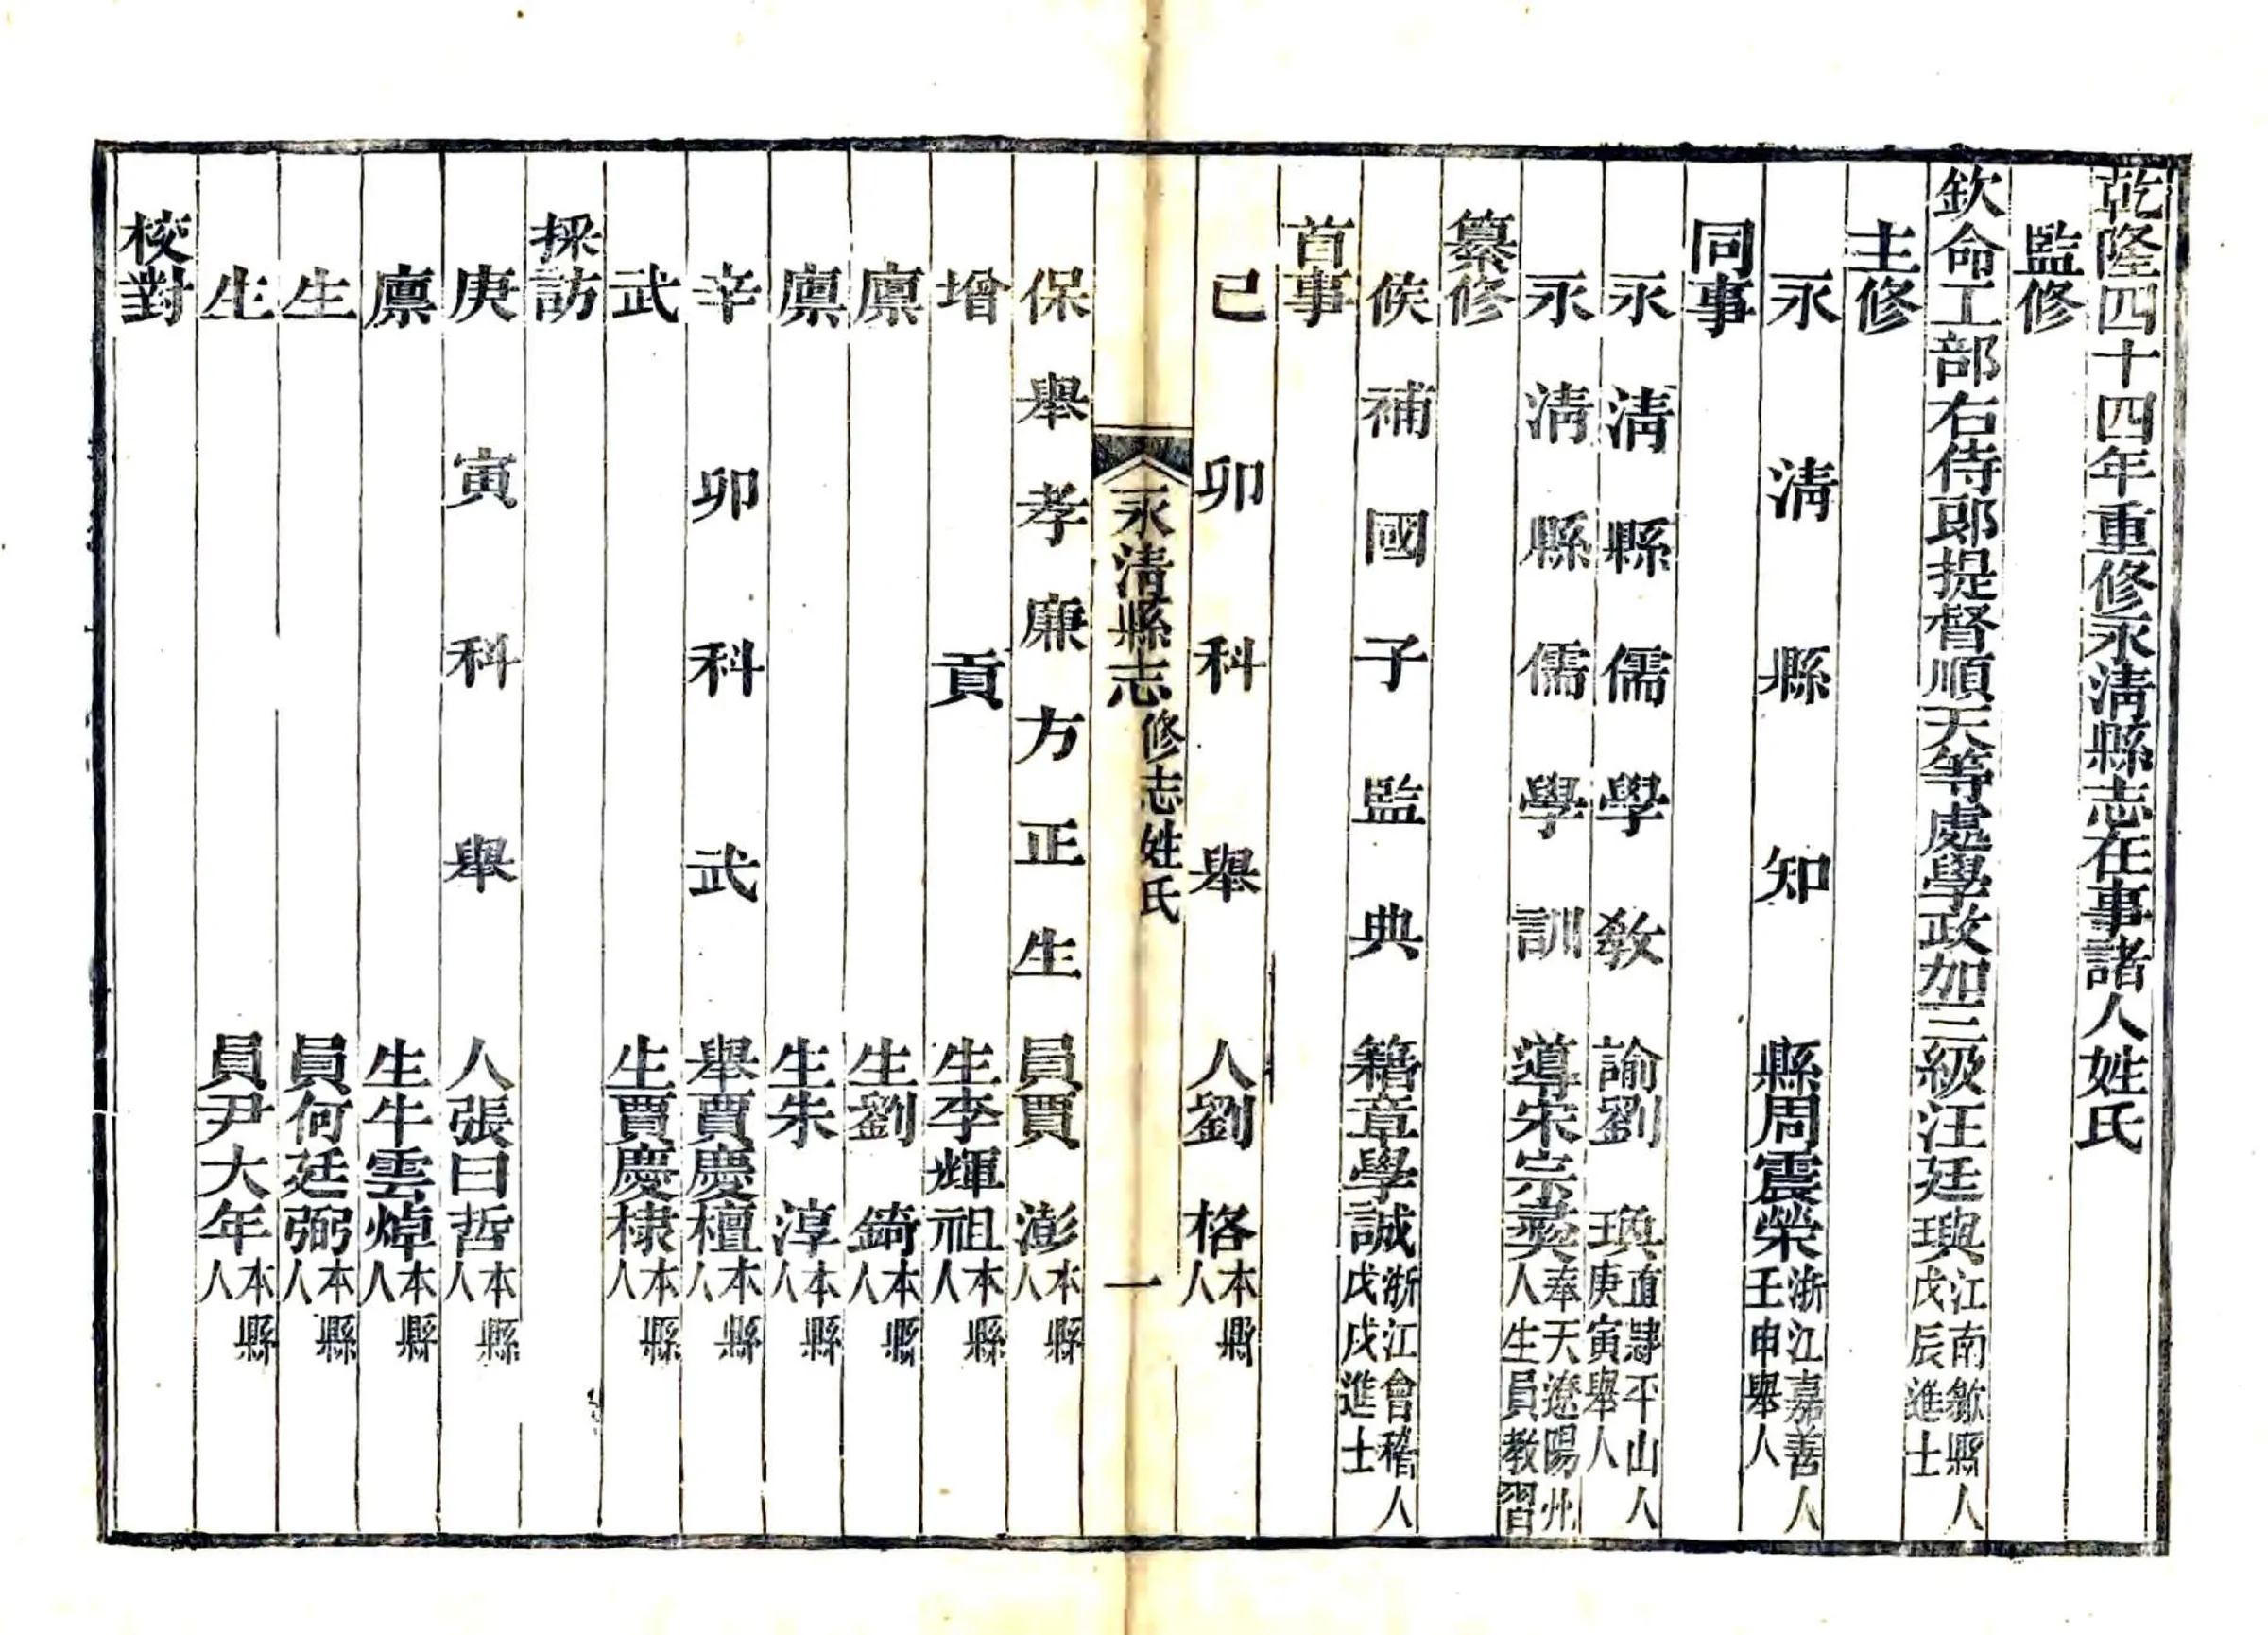 乾隆四十四年重修永淸縣志在事諸人姓氏
監修
欽命工部右侍郎提督順天等處學政加三級汪廷璵江南歙縣人戊辰進士
主修
永淸縣知縣周震榮浙江嘉善人壬申舉人
同事
永淸縣儒學敎諭劉璵直隸平山人庚寅舉人
永淸縣儒學訓導宋宗彝奉天遼陽州人生員教習
纂修
候補國子監典籍章學誠浙江會稽人戊戌進士
首事
己卯科舉人劉格本縣人
永淸縣志 修志姓氏 一
保舉孝廉方正生員賈澎本縣人
增貢生李輝祖本縣人
廪生劉錡本縣人
廪生朱淳本縣人
辛卯科武舉賈慶檀本縣人
武生賈慶棣本縣人
採訪
庚寅科舉人張曰哲本縣人
廪生牛雲焯本縣人
生員何廷弼本縣人
生員尹大年本縣人
校對